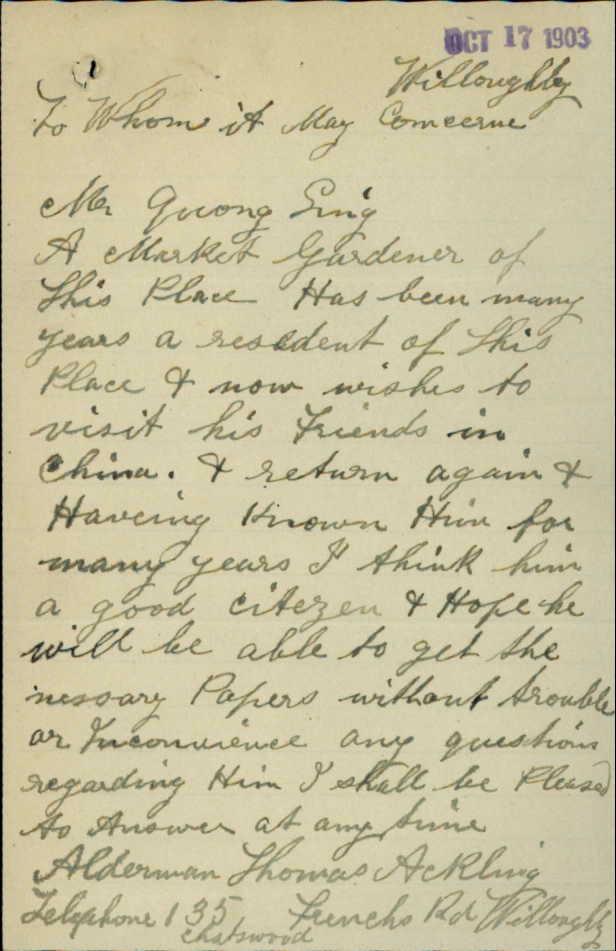 OCT 17 1903
Willoughby
To Whom it May Comcerne
Mr Quong Sing
A Market Gardener of
This Place Has been many
years a resedent of This
Place & now wishes to
visit his Friends in
China. & return again &
Haveing Known Him for
many years I think him
a good citezen & Hope he
will be able to get the
nessary Papers without trouble
or Inconvience any questions
regarding Him I shall be Pleased
to Answer at any time
Alderman Thomas Ackling
Telephone 135 Frenchs Rd Willoughby
Chatswood